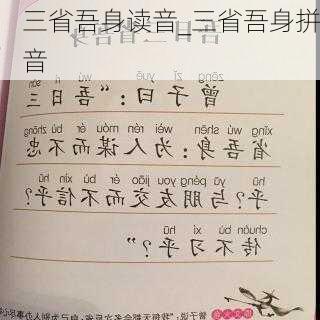 三省吾身读音_三省吾身拼
音
zēng yuē wú sān
曾子曰：“吾日三
xǐng wú shēn wèi rén móu ér bù zhōng
省吾身：为人谋而不忠
hū yǔ péng yǒu jiāo ér bù xìn hū
乎？与朋友交而不信乎？
chuán bù xí hū
传不习乎？”